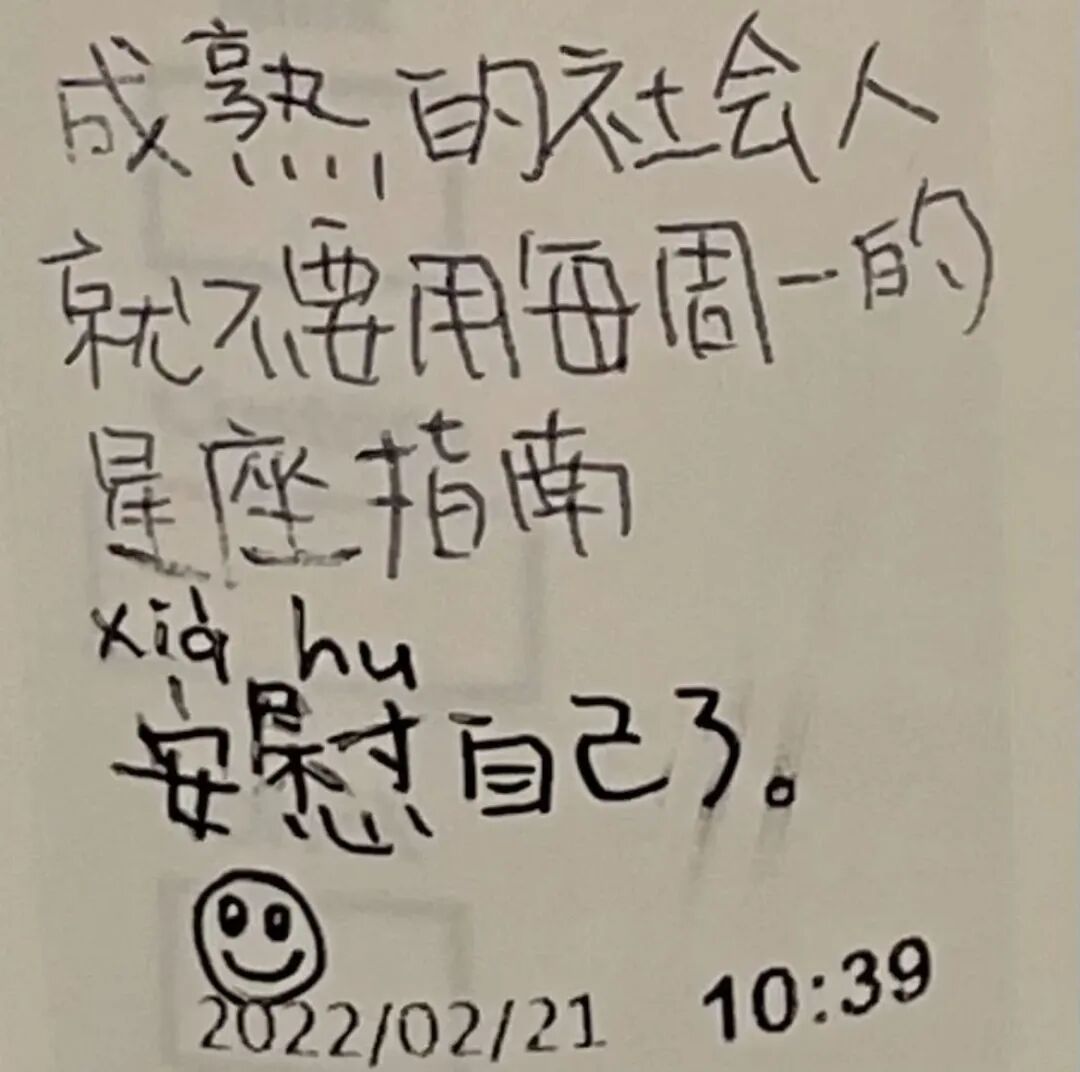 成熟的社会人
就不要用每周一的
星座指南
xià hu
安慰自己了。
2022/02/21 10:39